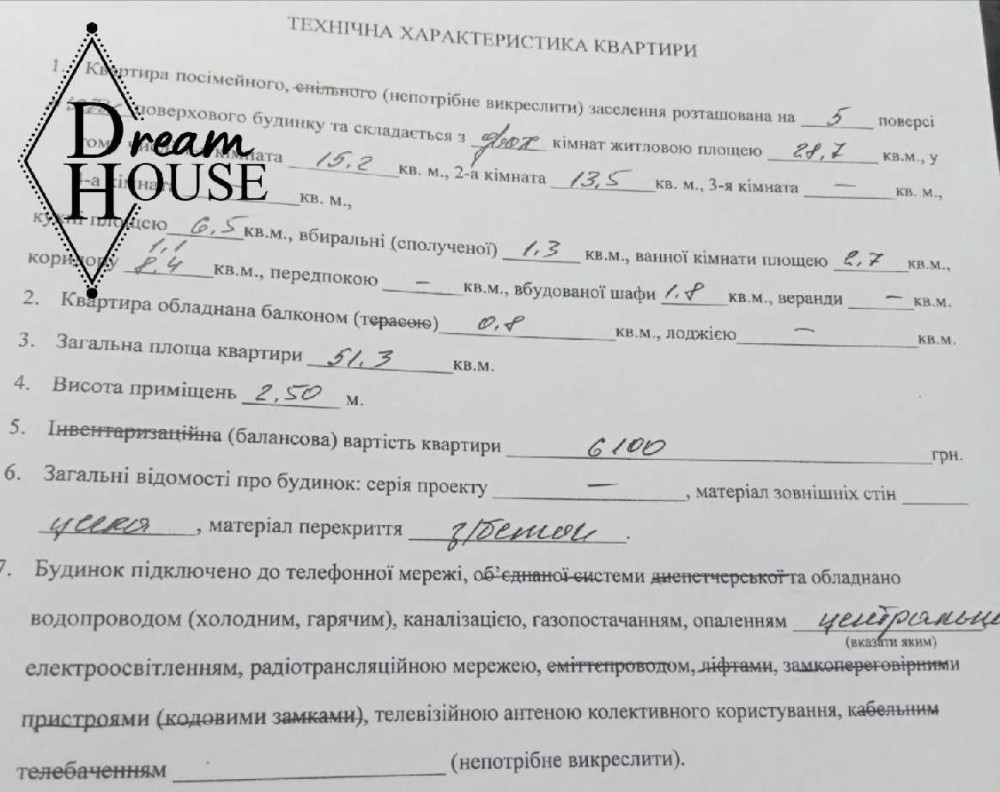 ТЕХНІЧНА ХАРАКТЕРИСТИКА КВАРТИРИ
1. Квартира посімейного, спільного (непотрібне викреслити) заселення розташована на 5 поверсі
поверхового будинку та складається з двох кімнат житловою площею 28,7 кв.м., у
кімната 15,2 кв. м., 2-а кімната 13,5 кв. м., 3-я кімната — кв. м.,
-а кімната кв. м.,
кухні площею 6,5 кв.м., вбиральні (сполученої) 1,3 кв.м., ванної кімнати площею 2,7 кв.м.,
1,1
коридору 8,4 кв.м., передпокою — кв.м., вбудованої шафи 1.8 кв.м., веранди — кв.м.
2. Квартира обладнана балконом (терасою) 0,8 кв.м., лоджією — кв.м.
3. Загальна площа квартири 51,3 кв.м.
4. Висота приміщень 2,50 м.
5. Інвентаризаційна (балансова) вартість квартири 6100 грн.
6. Загальні відомості про будинок: серія проекту — , матеріал зовнішніх стін
цегла , матеріал перекриття з/бетон .
7. Будинок підключено до телефонної мережі, об’єднаної системи диспетчерської та обладнано
водопроводом (холодним, гарячим), каналізацією, газопостачанням, опаленням
(вказати яким)
електроосвітленням, радіотрансляційною мережею, сміттєпроводом, ліфтами, замкопереговірними
пристроями (кодовими замками), телевізійною антеною колективного користування, кабельним
телебаченням (непотрібне викреслити).
Dream
HOUSE